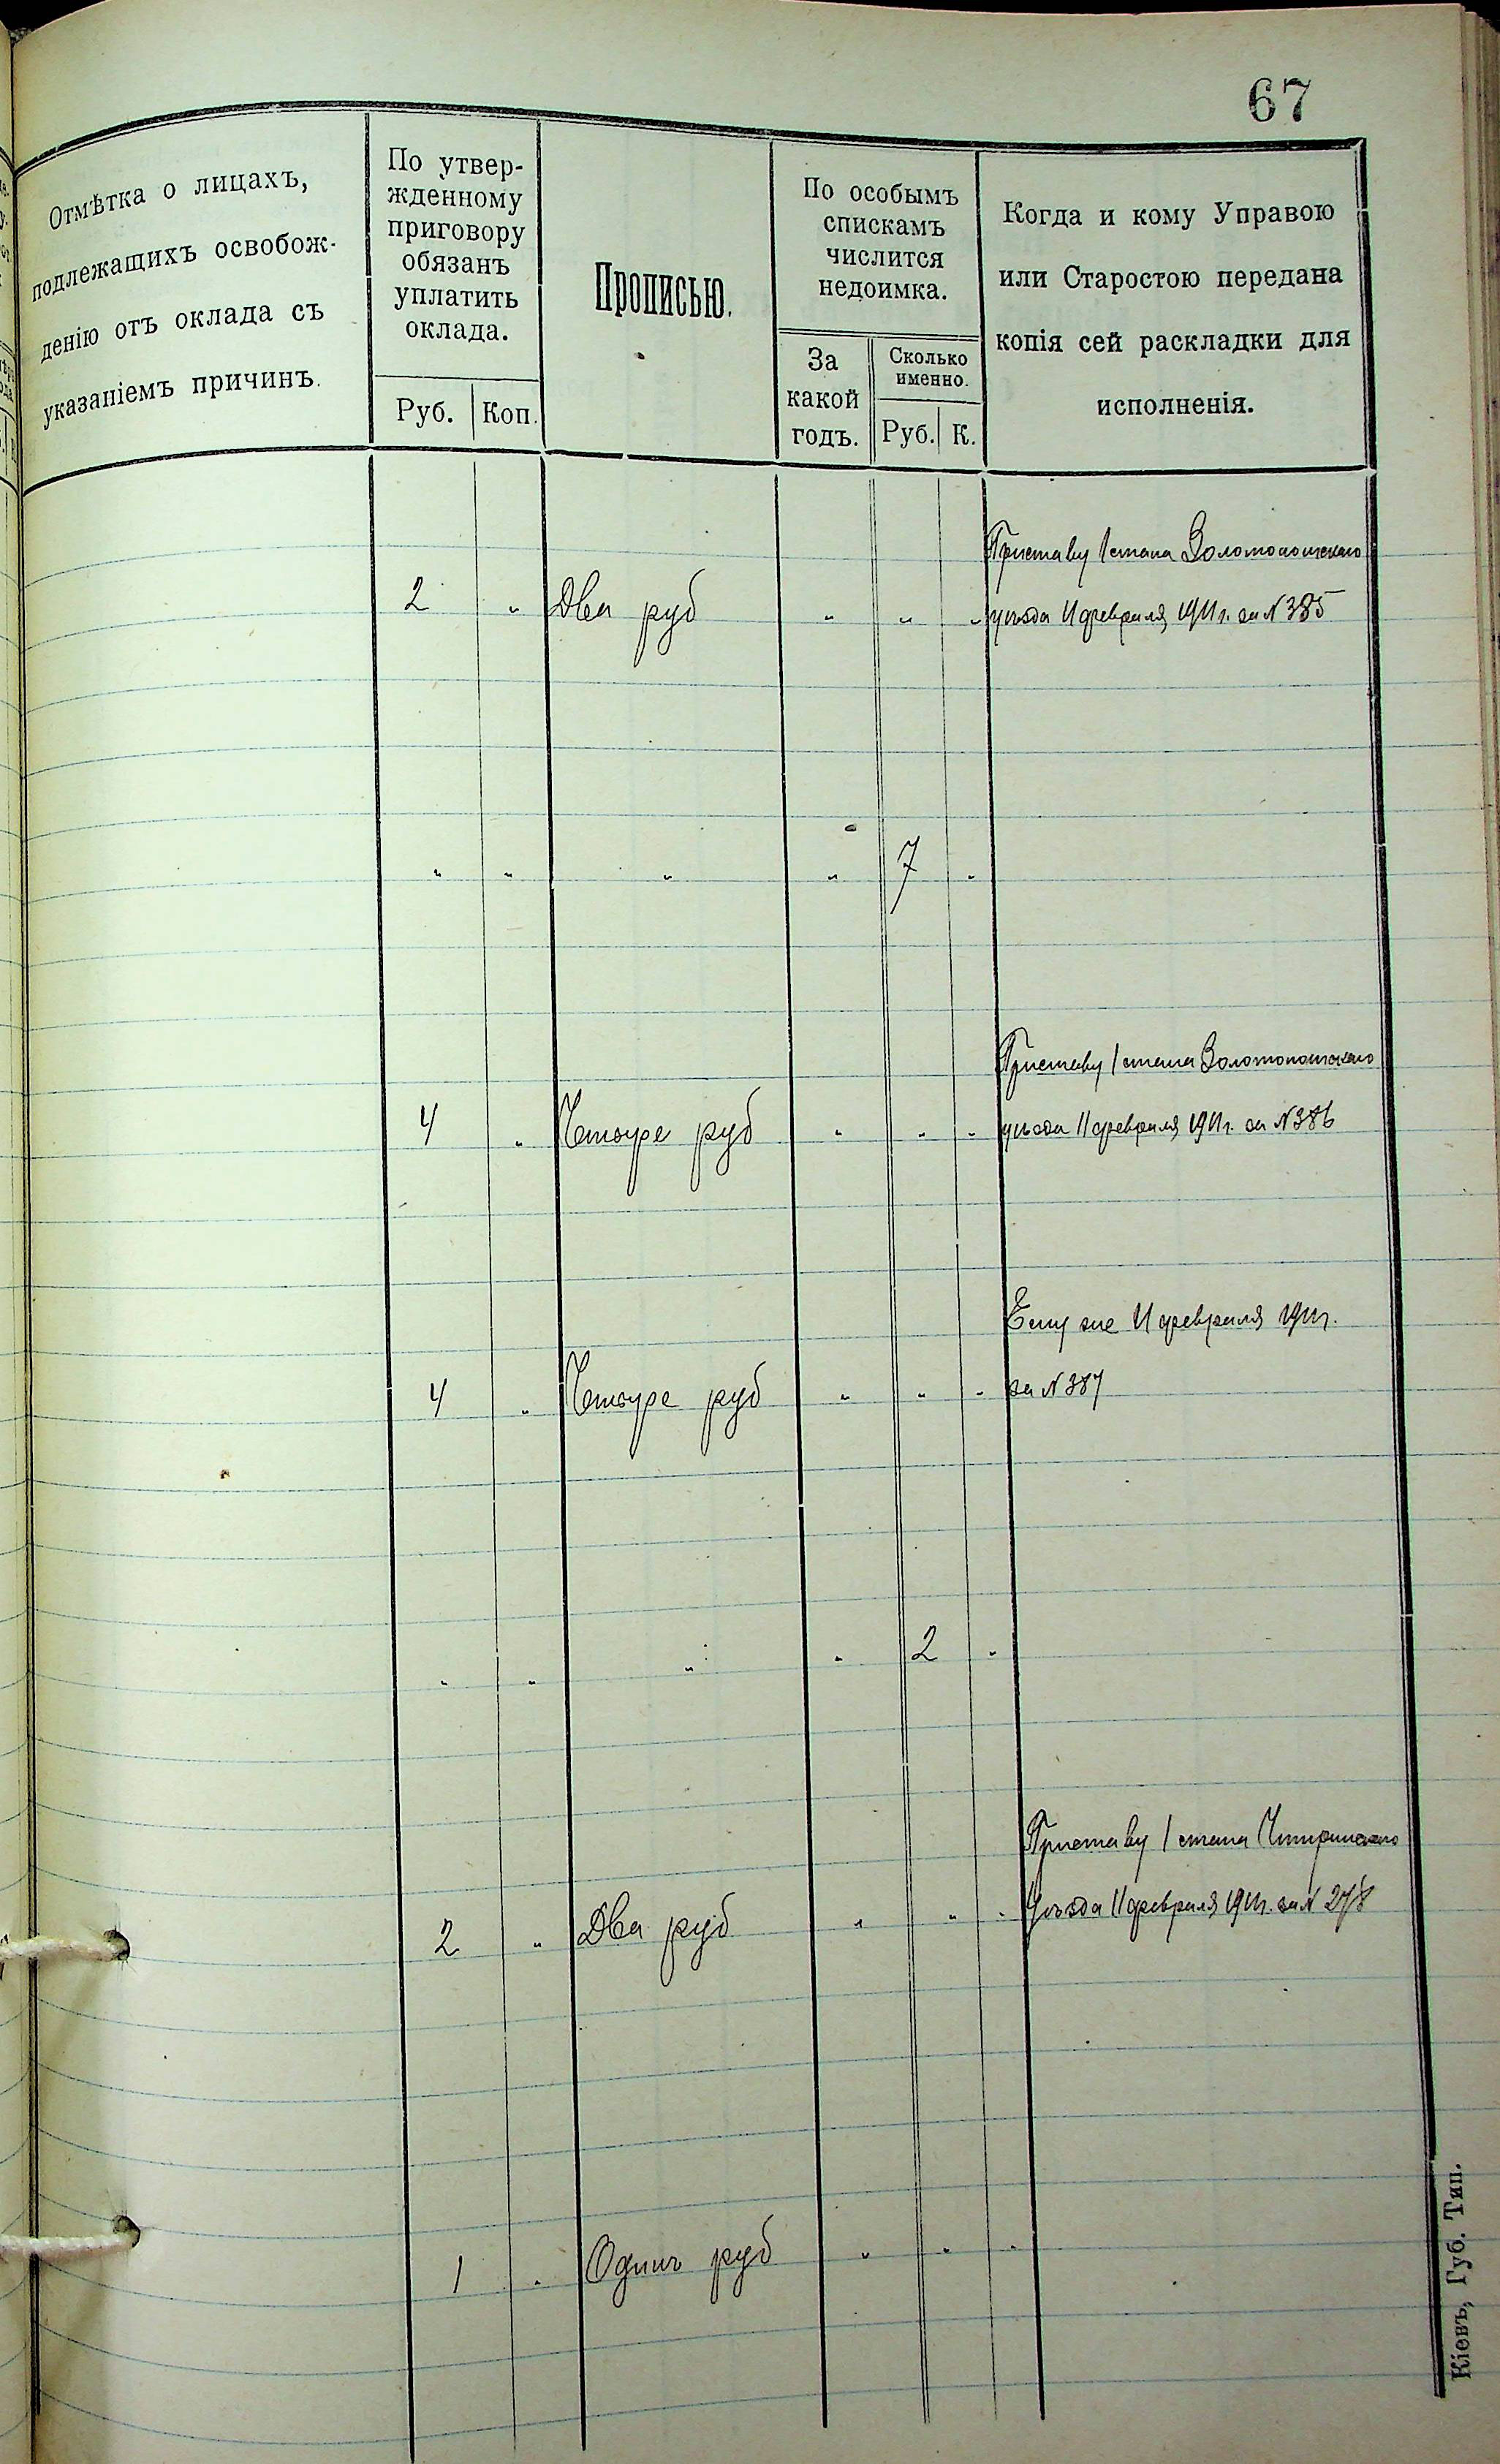 67
Отмѣтка о лицахъ,
подлежащихъ освобож-
денію отъ оклада съ
указаніемъ причинъ.
По утвер-
жденному
приговору
обязанъ
уплатить
оклада.
Руб.
Коп.
Прописью.
По особымъ
спискамъ
числится
недоимка.
За
какой
годъ.
Сколько
именно.
Руб.
К.
Когда и кому Управою
или Старостою передана
копія сей раскладки для
исполненія.
Приставу 1 стана Золотоношскаго
2 " Два руб " " " уѣзда 11 февраля 1911 г. за № 385
" " " " 7 "
Приставу 1 стана Золотоношскаго
4 " Четыре руб " " " уѣзда 11 февраля 1911 г. за № 386
Ему же 11 февраля 1911 г.
4 " Четыре руб " " " за № 387
" " " " 2 "
Приставу 1 стана Чигиринскаго
2 " Два руб " " " Уѣзда 11 февраля 1911 г. за № 278
1 " Одинъ руб " " "
Кіевъ, Губ. Тип.